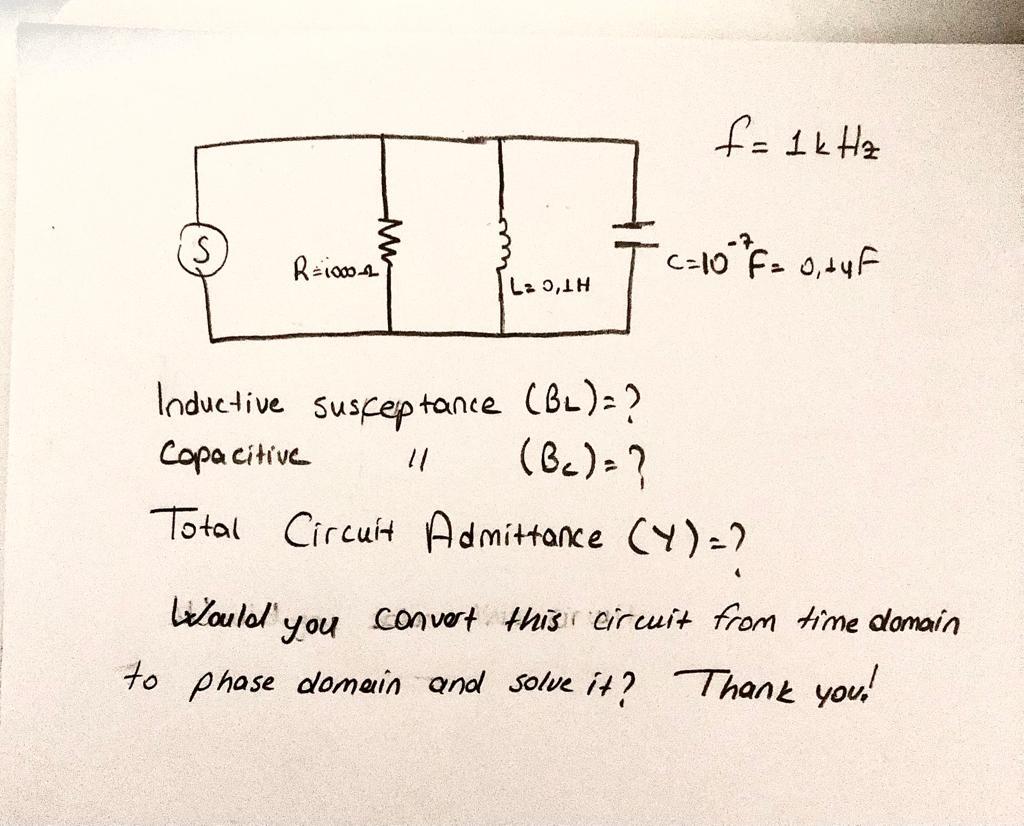 f= 1k Hz
S
R=1000Ω
L= 0,1H
C=10⁻⁷F= 0,1μF
Inductive susceptance (BL)=?
Capacitive 〃 (Bc)=?
Total Circuit Admittance (Y)=?
Would you convert this circuit from time domain
to phase domain and solve it? Thank you!